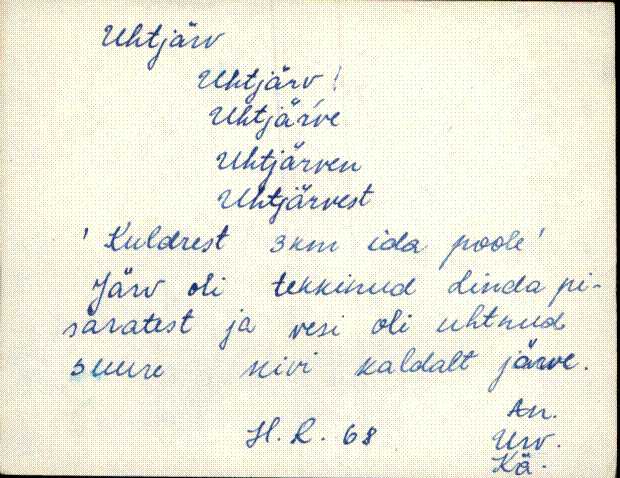 Uhtjärv
Uhtjärv!
Uhtjär've
Uhtjärven
Uhtjärvest
' Kuldrest 3km ida poole'
Järv oli tekkinud Linda pi-
saratest ja vesi oli uhtnud
suure kivi kaldalt järve.
An.
H. R. 68
Urv.
Kä.